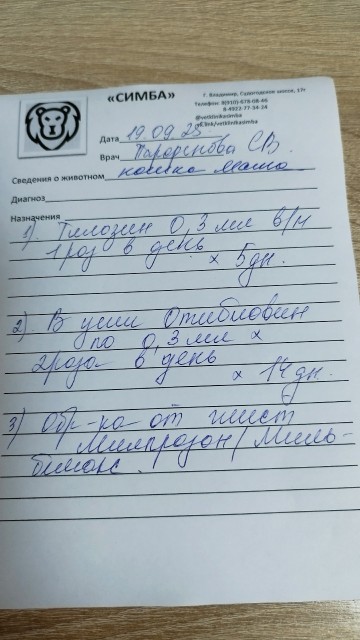 «СИМБА»
г. Владимир, Судогодское шоссе, 17г
Телефон: 8(910)-678-08-46
8-4922-77-34-24
@vetklinikasimba
Дата 19.09.25
Врач СВ.
Сведения о животном кошка Маша
Диагноз
Назначения
1). Тилозин 0,3 мл в/м
1 раз в день
x 5дн.
2) В уши Отибиовин
по 0,3 мл x
2 раза в день
x 14 дн.
3) Обр-ка от глист
Милпразон/Миль-
бимакс.